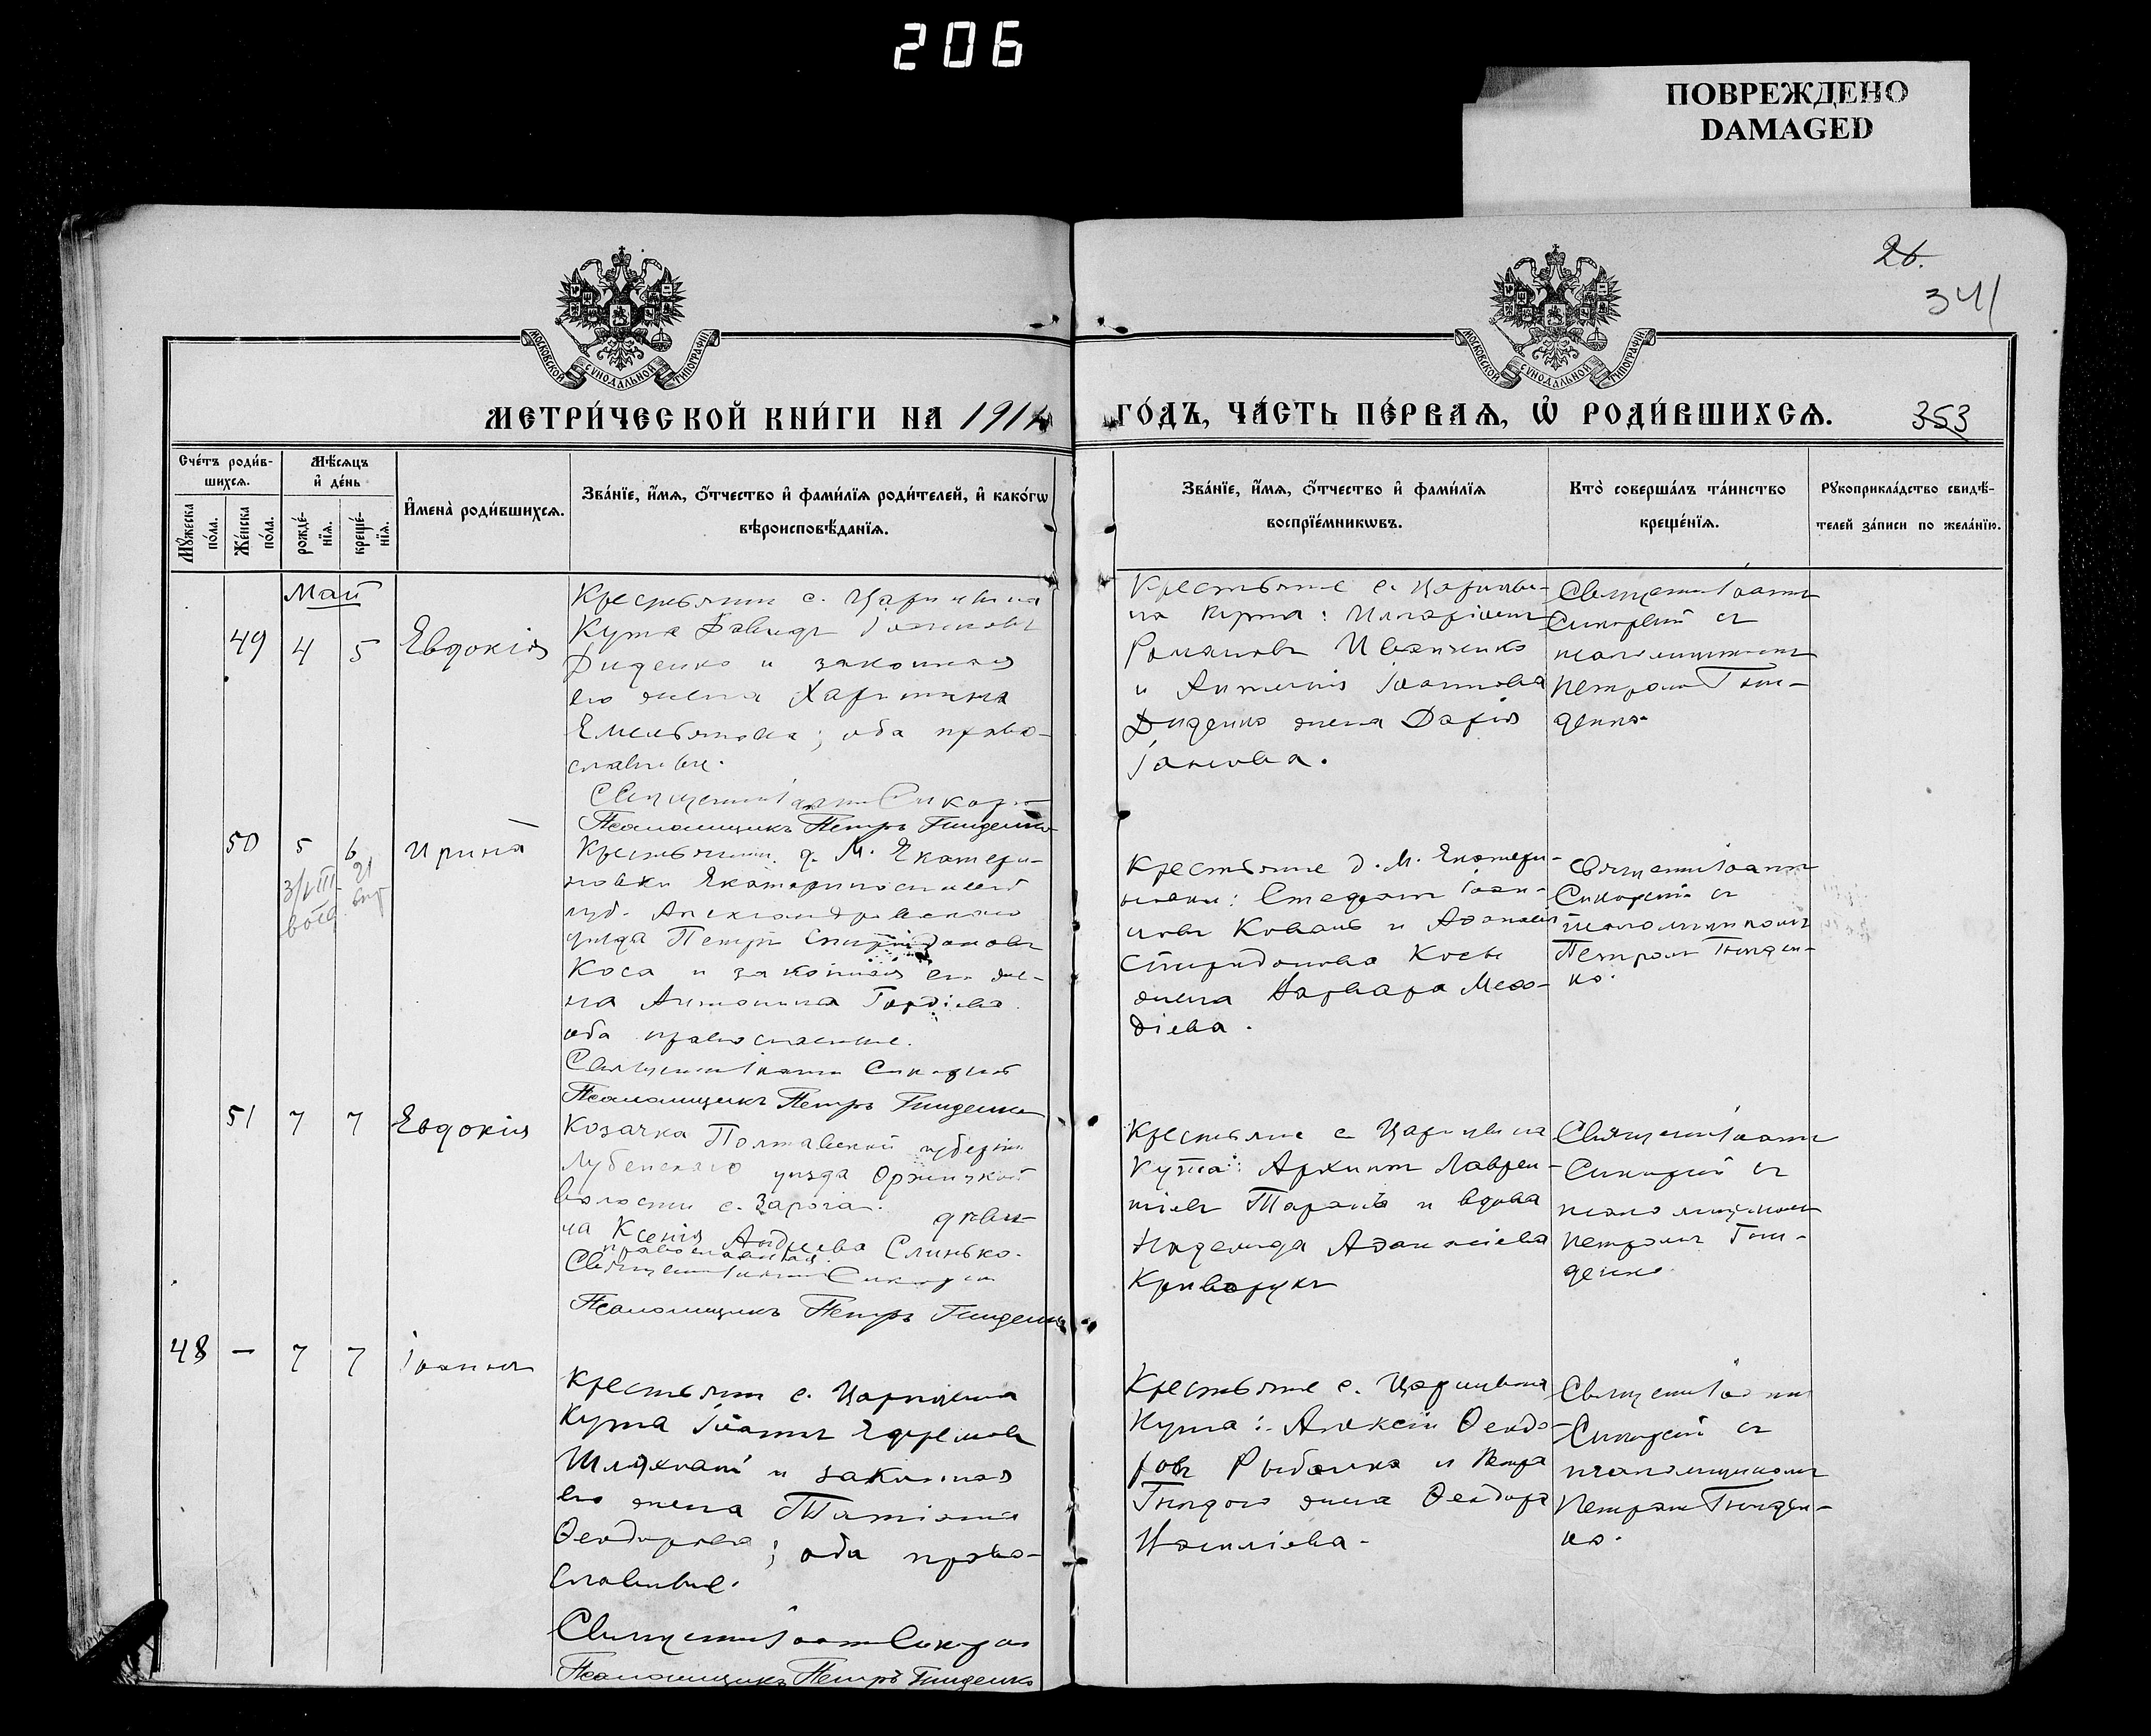 206
ПОВРЕЖДЕНО
DAMAGED
26.
341
МОСКОВСКОЙ СѴНОДАЛЬНОЙ ТИПОГРАФІИ
МОСКОВСКОЙ СѴНОДАЛЬНОЙ ТИПОГРАФІИ
МЕТРИ́ЧЕСКОЙ КНИ́ГИ НА 191
ГО́ДЪ, ЧА́СТЬ ПЕ́РВАѦ, Ѡ҆ РОДИ́ВШИХСѦ.
353
Сче́тъ роди́в-
шихсѧ.
Мꙋ́жеска по́ла.
Же́нска по́ла.
Мѣ́сѧцъ
и҆ де́нь
рожде́-
нїѧ.
креще́-
нїѧ.
И҆мена̀ роди́вшихсѧ.
Зва́нїе, и҆́мѧ, ѻ҆́тчество и҆ фами́лїѧ роди́телей, и҆ како́гѡ
вѣроисповѣ́данїѧ.
Зва́нїе, и҆́мѧ, ѻ҆́тчество и҆ фами́лїѧ
воспрїе́мникѡвъ.
Кто̀ соверша́лъ та́инство
креще́нїѧ.
Рꙋкоприкла́дство свидѣ́-
телей за́писи по жела́нїю.
Май
49 4 5 Евдокія
Крестьянинъ с. Царицына
Кута Давидъ Іоанновъ
Диденко и законная
его жена Харитина
Емельянова; оба право-
славные.
Священникъ Іоаннъ Сикор
Псаломщикъ Петръ Гниденко
Крестьяне с. Царицы-
на Кута: Иларіонъ
Романовъ Иваненко
и Антонія Іоаннова
Диденко жена Дарія
Іоаннова.
Священ. Іоаннъ
Сикорскій съ
псаломщикомъ
Петромъ Гни-
денко.
50 5 6 Ирина
3/VIII 21
Крестьянинъ д. М. Екатери-
новки Екатеринославской
губ. Александровскаго
уѣзда Петръ Спиридоновъ
Коса и законная его же-
на Антонина Гордіева
оба православные.
Священ. Іоаннъ Сикорскій
Псаломщикъ Петръ Гниденко
Крестьяне д. М. Екатери-
новки: Стефанъ Іоан-
новъ Коваль и Аѳанасія
Спиридонова Косы
жена Варвара Меѳо-
діева.
Священ. Іоаннъ
Сикорскій съ
псаломщикомъ
Петромъ Гниден-
ко.
51 7 7 Евдокія
Козачка Полтавской губерніи
Лубенскаго уѣзда Оржицкой
волости с. Зарога: дѣви-
ца Ксенія Андреева Слинько.
православная.
Священ. Іоаннъ Сикорскій
Псаломщикъ Петръ Гниденко
Крестьяне с. Царицына
Кута: Архипъ Лаврен-
тіевъ Таранъ и вдова
Надежда Аѳанасіева
Криворукъ
Священ. Іоаннъ
Сикорскій съ
псаломщикомъ
Петромъ Гни-
денко
48 — 7 7 Іоаннъ
Крестьянинъ с. Царицына
Кута Іоаннъ Ефремовъ
и законная
его жена Татіана
Ѳеодорова; оба право-
славные.
Священ. Іоаннъ Сикорскій
Псаломщикъ Петръ Гниденко
Крестьяне с. Царицына
Кута: Алексій Ѳеодо-
ровъ Рыбалка и Петра
жена Ѳеодора
Василіева.
Священ. Іоаннъ
Сикорскій съ
псаломщикомъ
Петромъ Гниден-
ко.